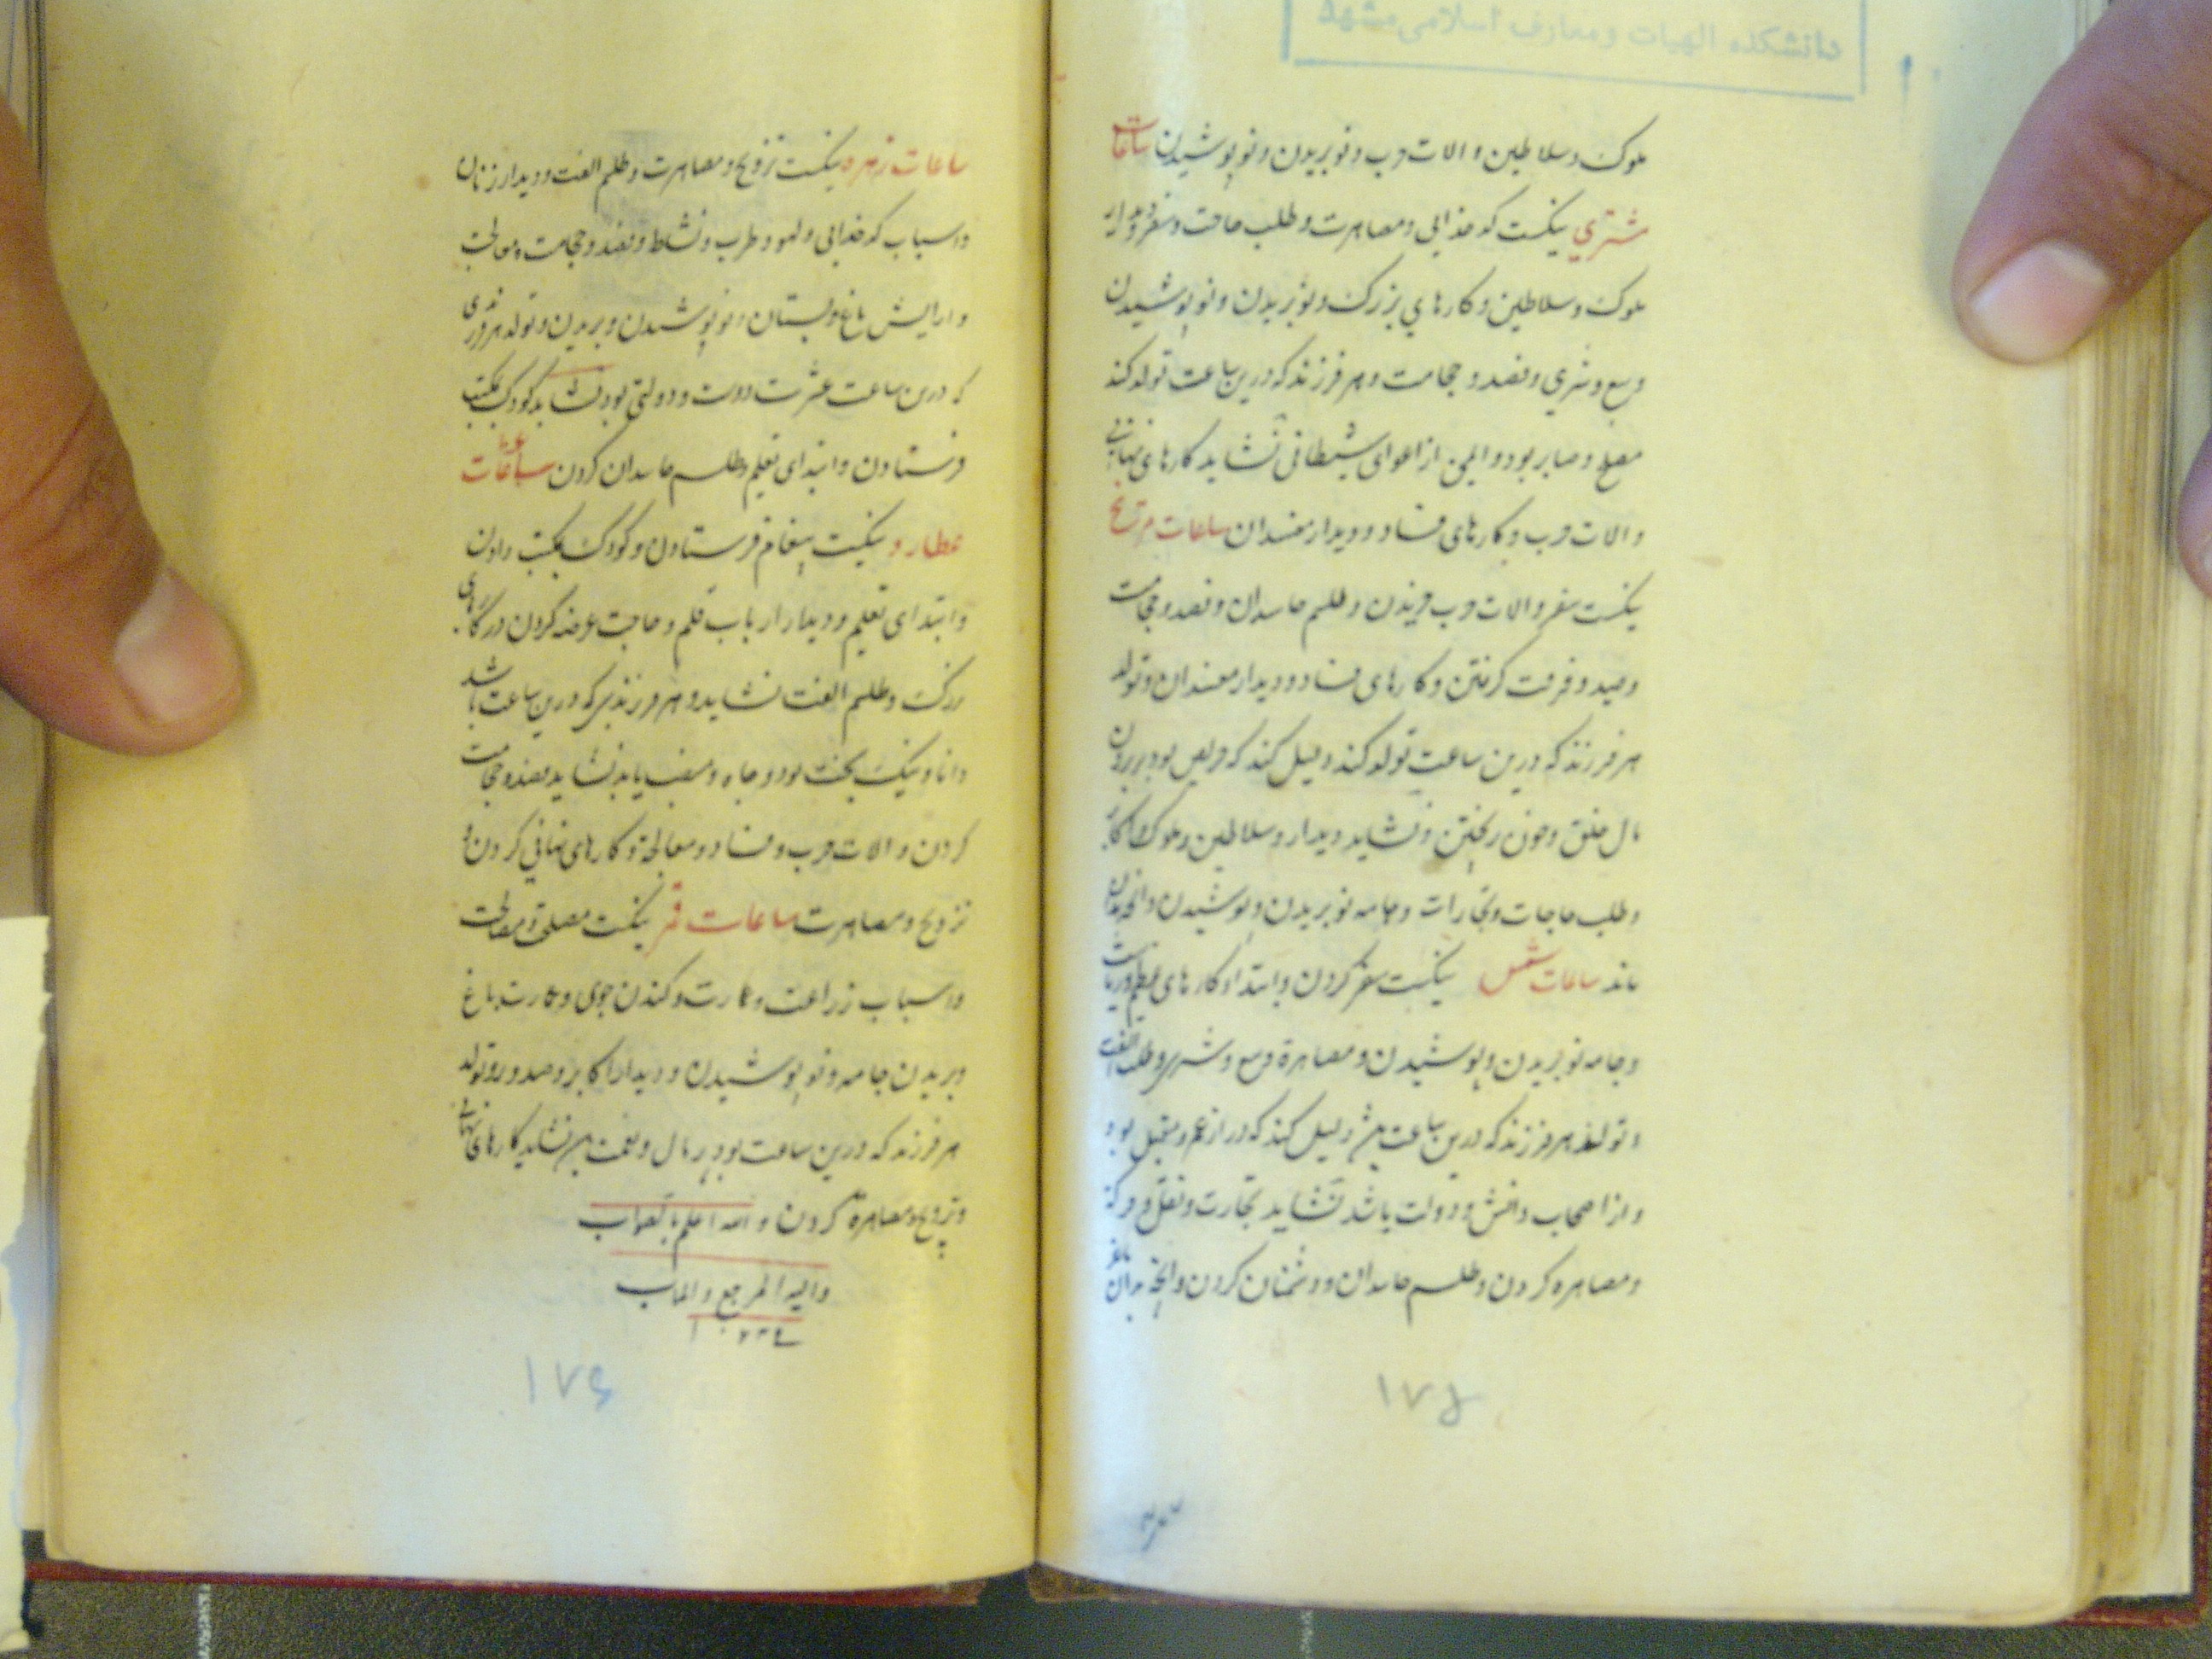 دانشکده الهیات و معارف اسلامی مشهد
ملوک و سلاطین و الات حرب و نو بریدن و نو پوشیدن ساعات
مشتری نیکست که خدایی و مصاهرت و طلب حاجت و سفر و دیدار
ملوک و سلاطین و کارهای بزرک و نو بریدن و نو پوشیدن
و بیع و شری و فصد و حجامت و هر فرزند که درین ساعت تولد کند
مصلح و صابر بود و ایمن از اغوای شیطانی نشاید کارهای نهانی
و الات حرب و کارهای فساد و دیدار مفسدان ساعات مریخ
نیکست سفر و الات حرب خریدن و طلسم حاسدان و فصد و حجامت
و صید و فرقت کرفتن و کارهای فساد و دیدار مفسدان و تولد
هر فرزند که درین ساعت تولد کند دلیل کند که حریص بود بربردن
مال خلق و خون ریختن و نشاید دیدار و سلاطین و ملوک و اکابر
و طلب حاجات و تجارات و جامه نو بریدن و پوشیدن و انچه بدان
ماند ساعات شمس نیکست سفر کردن و ابتداء کارهای عظیم و ریاست
و جامه نو بریدن و پوشیدن و مصاهرة و بیع و شری و طلسم الفت
و تولد هر فرزند که درین ساعت دلیل کند که دراز عمر و مقبل بود
و از اصحاب دانش و دولت باشد نشاید تجارت و نقل و حرکة
و مصاهره کردن و طلسم حاسدان و دشمنان کردن و انچه بدان ماند
۱۷۵
ساعات زهره نیکست تزویج و مصاهرت و طلسم الفت و دیدار زنان
و اسباب که خدایی و لهو و طرب و نشاط و فصد و حجامت و معالجت
و ارایش باغ و بستان و نو پوشیدن و بریدن و تولد هر فرزندی
که درین ساعت عشرت دوست و دولتی بود نشاید کودک بمکتب
فرستادن و ابتدای تعلیم و طلسم حاسدان کردن ساعات
عطارد نیکست پیغام فرستادن و کودک بمکتب دادن
و ابتدای تعلیم و دیدار ارباب قلم و حاجت عرضه کردن در کارهای
بزرک و طلسم الفت نشاید و هر فرزندی که درین ساعت باشد
دانا و نیک بخت بود و جاه و منصب یابد نشاید فصد و حجامت
کردن و الات حرب و فساد و معالجة و کارهای نهانی کردن و
تزویج و مصاهرت ساعات قمر نیکست مصلحة و معالجت
و اسباب زراعت و عمارت و کندن جوی و عمارت باغ
و بریدن جامه و نو پوشیدن و دیدار اکابر و صدور و تولد
هر فرزند که درین ساعت بود پر مال و نعمت نشاید کارهای نهانی
و تزویج و مصاهرة کردن و الله اعلم بالصواب
و الیه المرجع و الماب
۱۷۶